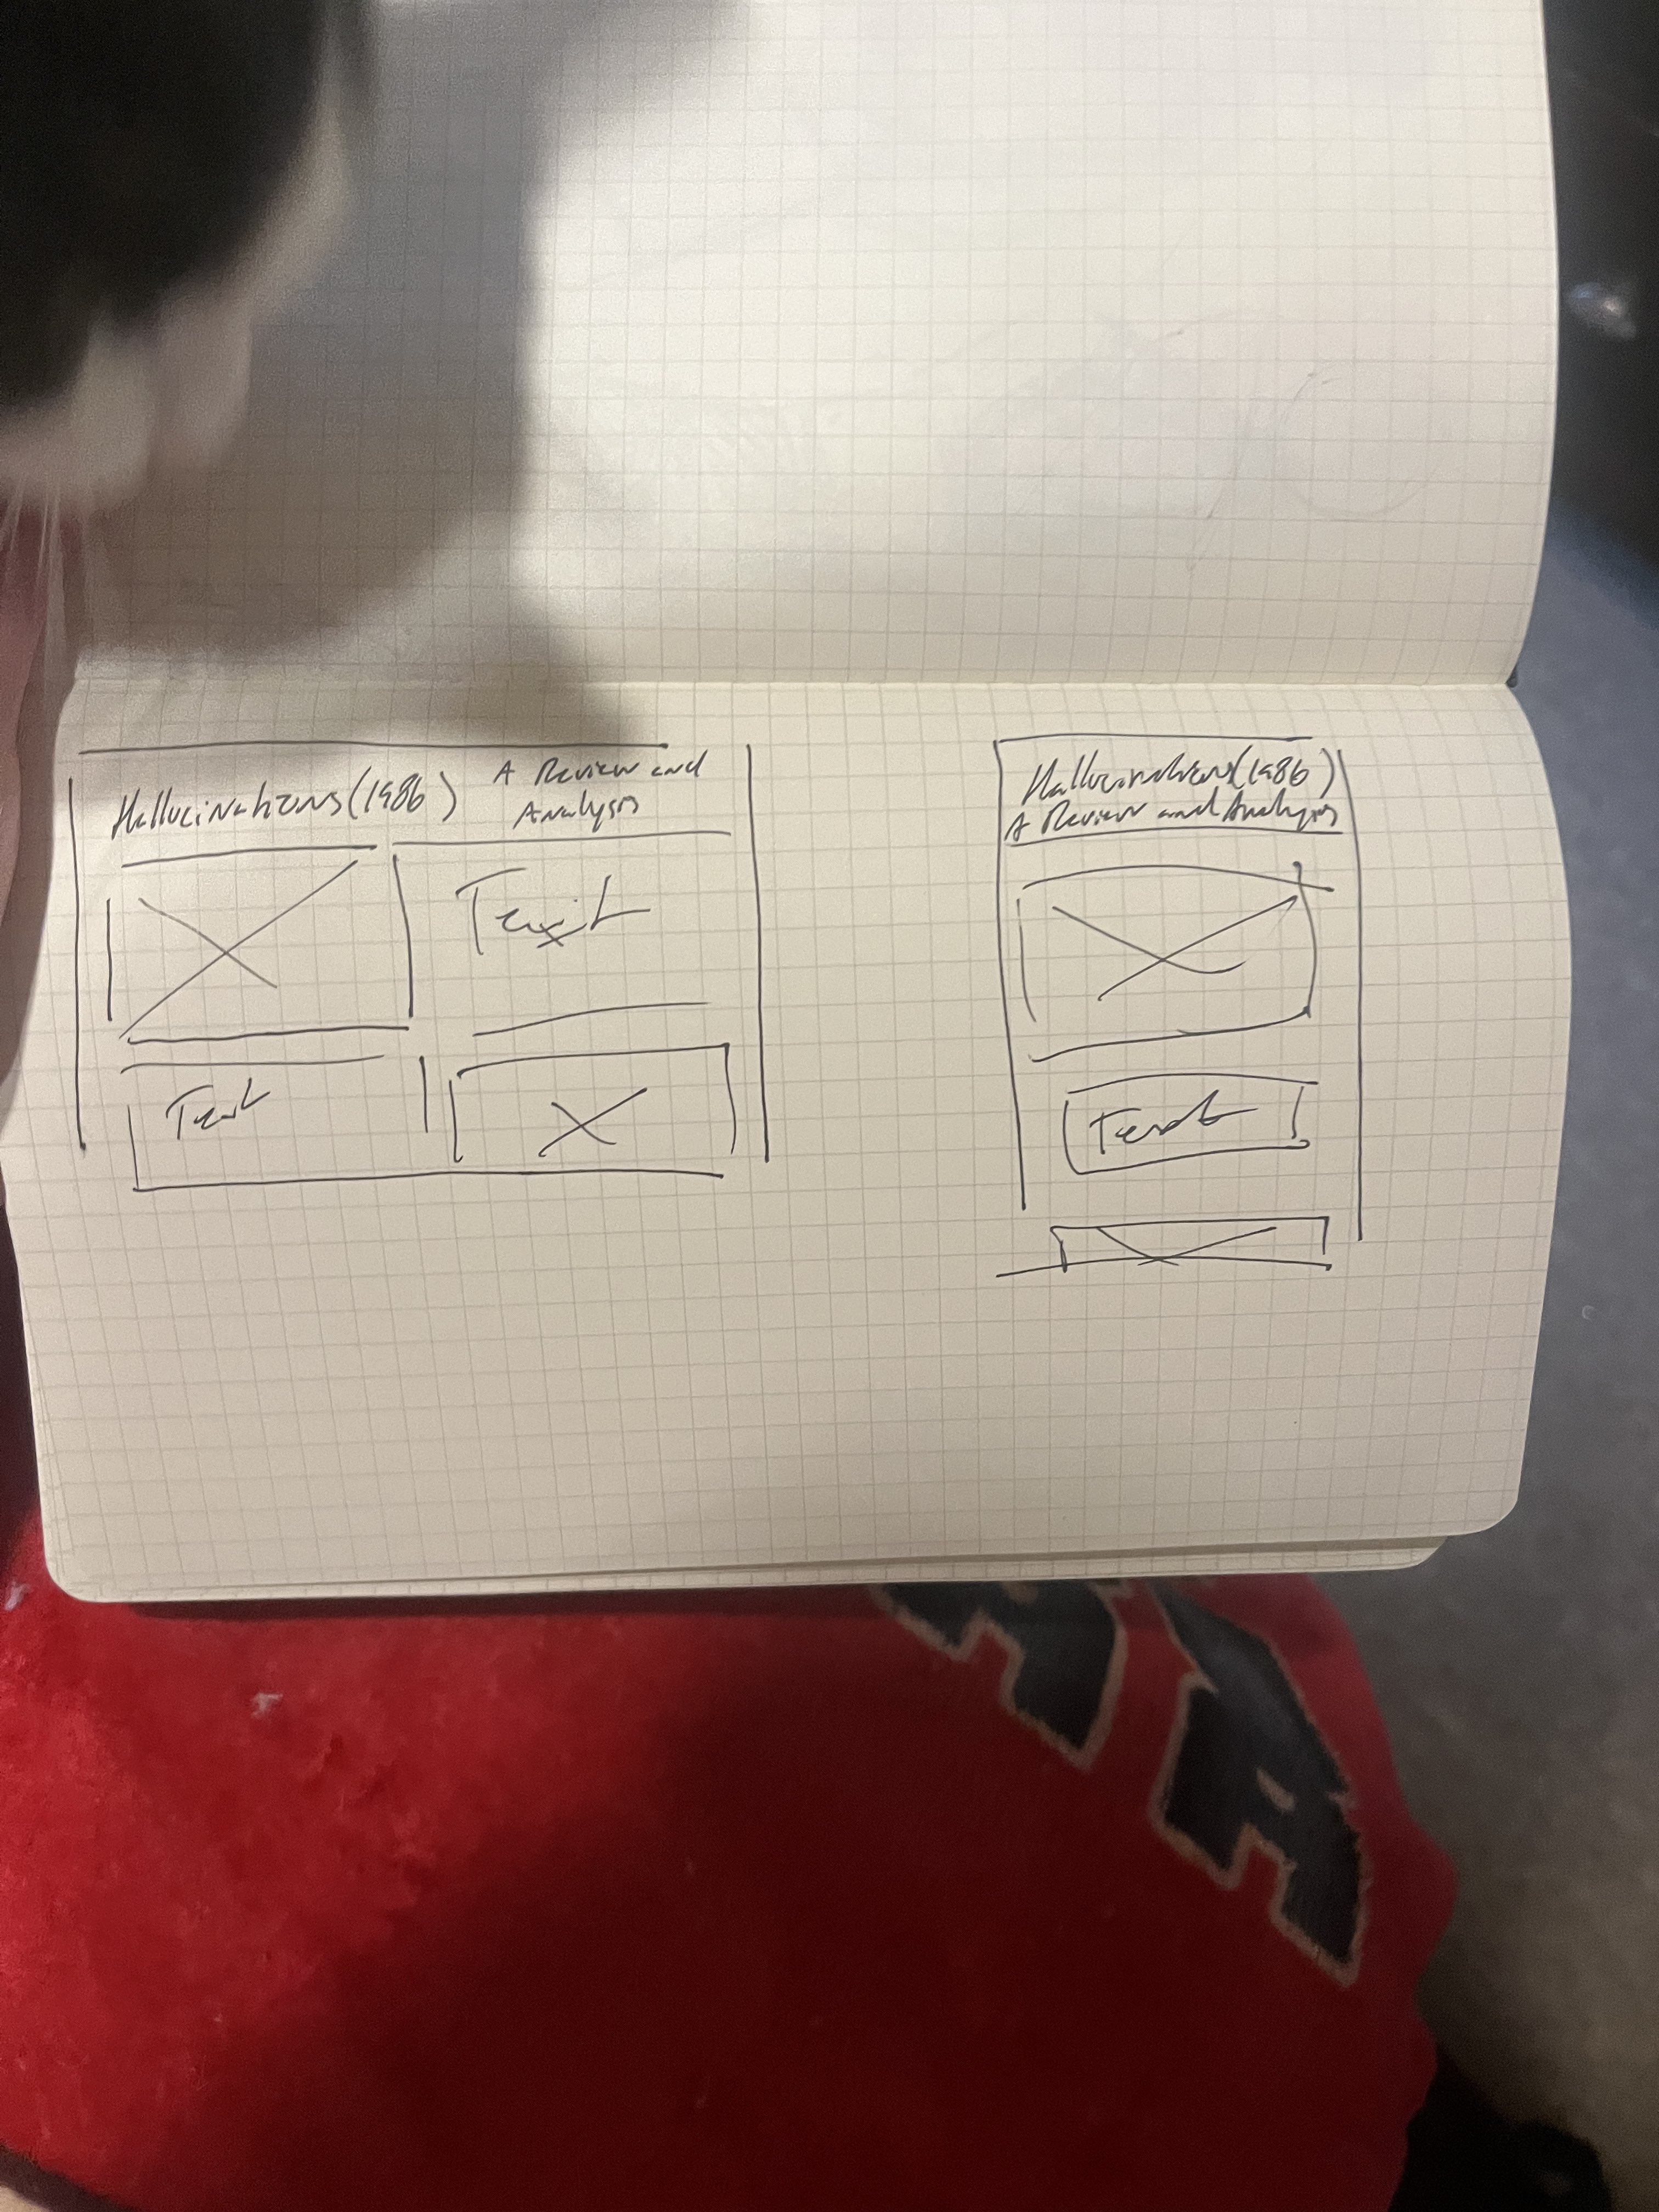 Hallucinations (1986)
A Review and
Analysis
Text
Text
Hallucinations (1986)
A Review and Analysis
Text